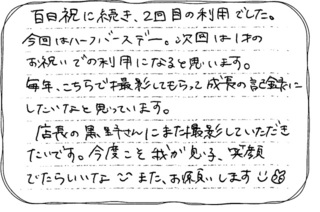 百日祝に続き、2回目の利用でした。
今回はハーフバースデー。次回は1才の
お祝いでの利用になると思います。
毎年、こちらで撮影してもらって成長の記録に
したいなと思っています。
店長の黒野さんにまた撮影していただき
たいです。今度こそ我が息子、笑顔
でたらいいな また、お願いします